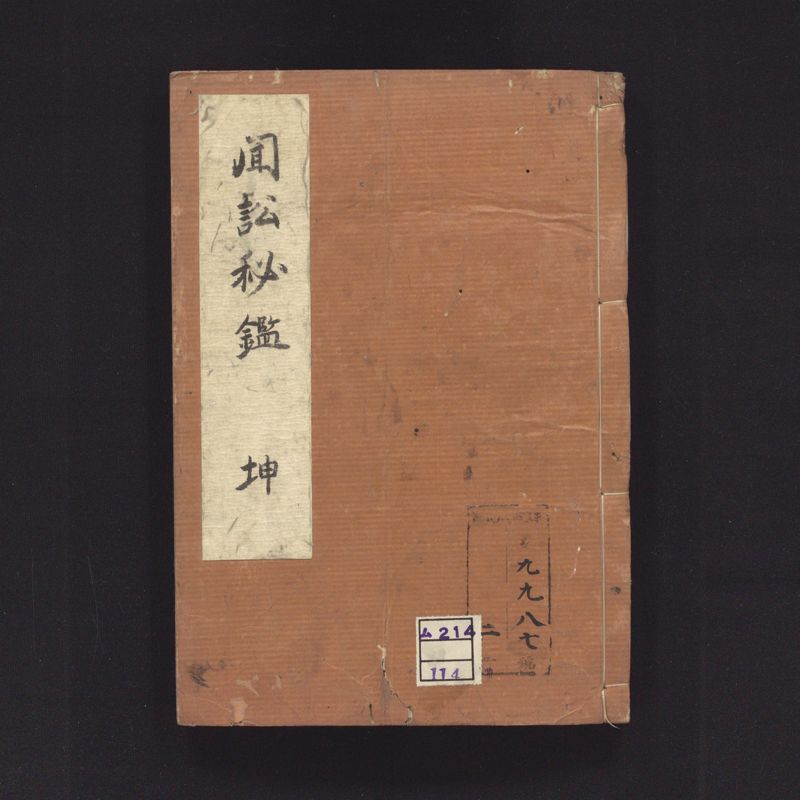 聞訟秘鑑　坤
九九八七
二
ム214
114